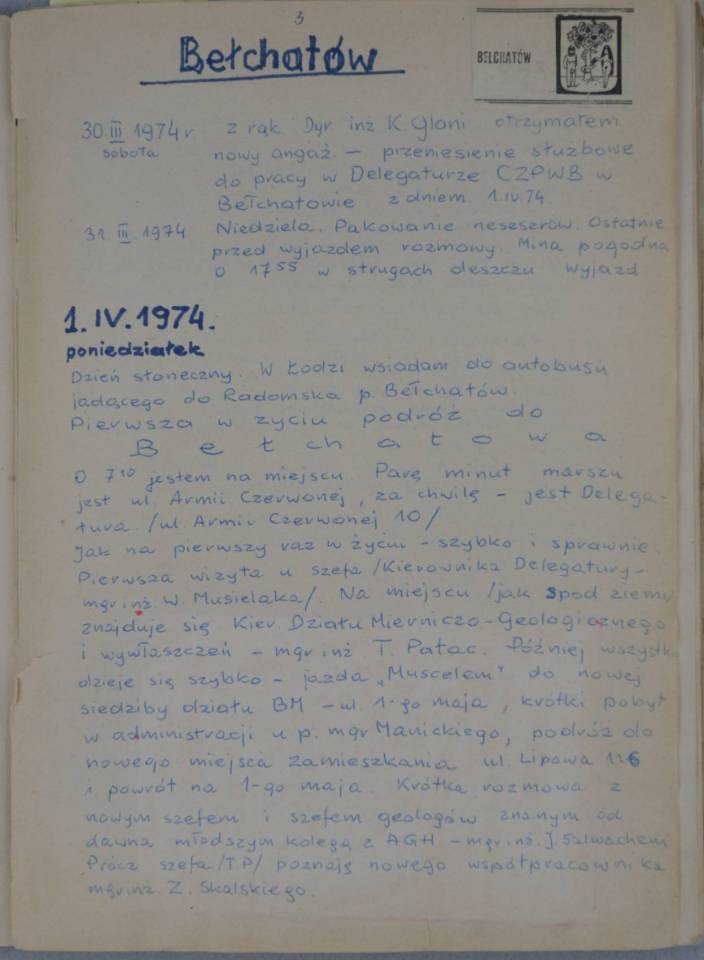 3
Bełchatów
BEŁCHATÓW
30.III 1974r z rąk Dyr inż K. Glani otrzymałem
sobota nowy angaż – przeniesienie służbowe
do pracy w Delegaturze CZPWB w
Bełchatowie z dniem. 1.IV.74
31.III.1974 Niedziela. Pakowanie neseserów. Ostatnie
przed wyjazdem rozmowy. Mina pogodna
O 17⁵⁵ w strugach deszczu wyjazd
1.IV.1974.
poniedziałek
Dzień słoneczny. W Łodzi wsiadam do autobusu
jadącego do Radomska p. Bełchatów.
Pierwsza w życiu podróż do
B e ł ch a t o w a
O 7¹⁰ jestem na miejscu. Parę minut marszu
jest ul. Armii Czerwonej, za chwilę – jest Delega-
tura. /ul. Armii Czerwonej 10/
Jak na pierwszy raz w życiu – szybko i sprawnie.
Pierwsza wizyta u szefa /Kierownika Delegatury–
mgr inż W. Musielaka/. Na miejscu /jak spod ziemi/
znajduje się Kier. Działu Mierniczo-Geologicznego
i wywłaszczeń – mgr inż. T. Pałac. Później wszystko
dzieje się szybko – jazda „Muscelem" do nowej
siedziby działu BM – ul. 1-go maja, krótki pobyt
w administracji u p. mgr Manickiego, podróż do
nowego miejsca zamieszkania ul. Lipowa 116
i powrót na 1-go maja. Krótka rozmowa z
nowym szefem i szefem geologów znanym od
dawna młodszym kolegą z AGH – mgr inż. J. Salwachem
Prócz szefa /TP/ poznaję nowego współpracownika
mgr inż. Z. Skalskiego.